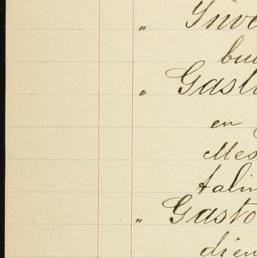 „ Inve
bu
„ Gast
en
Mes
talin
„ Gasto
dien